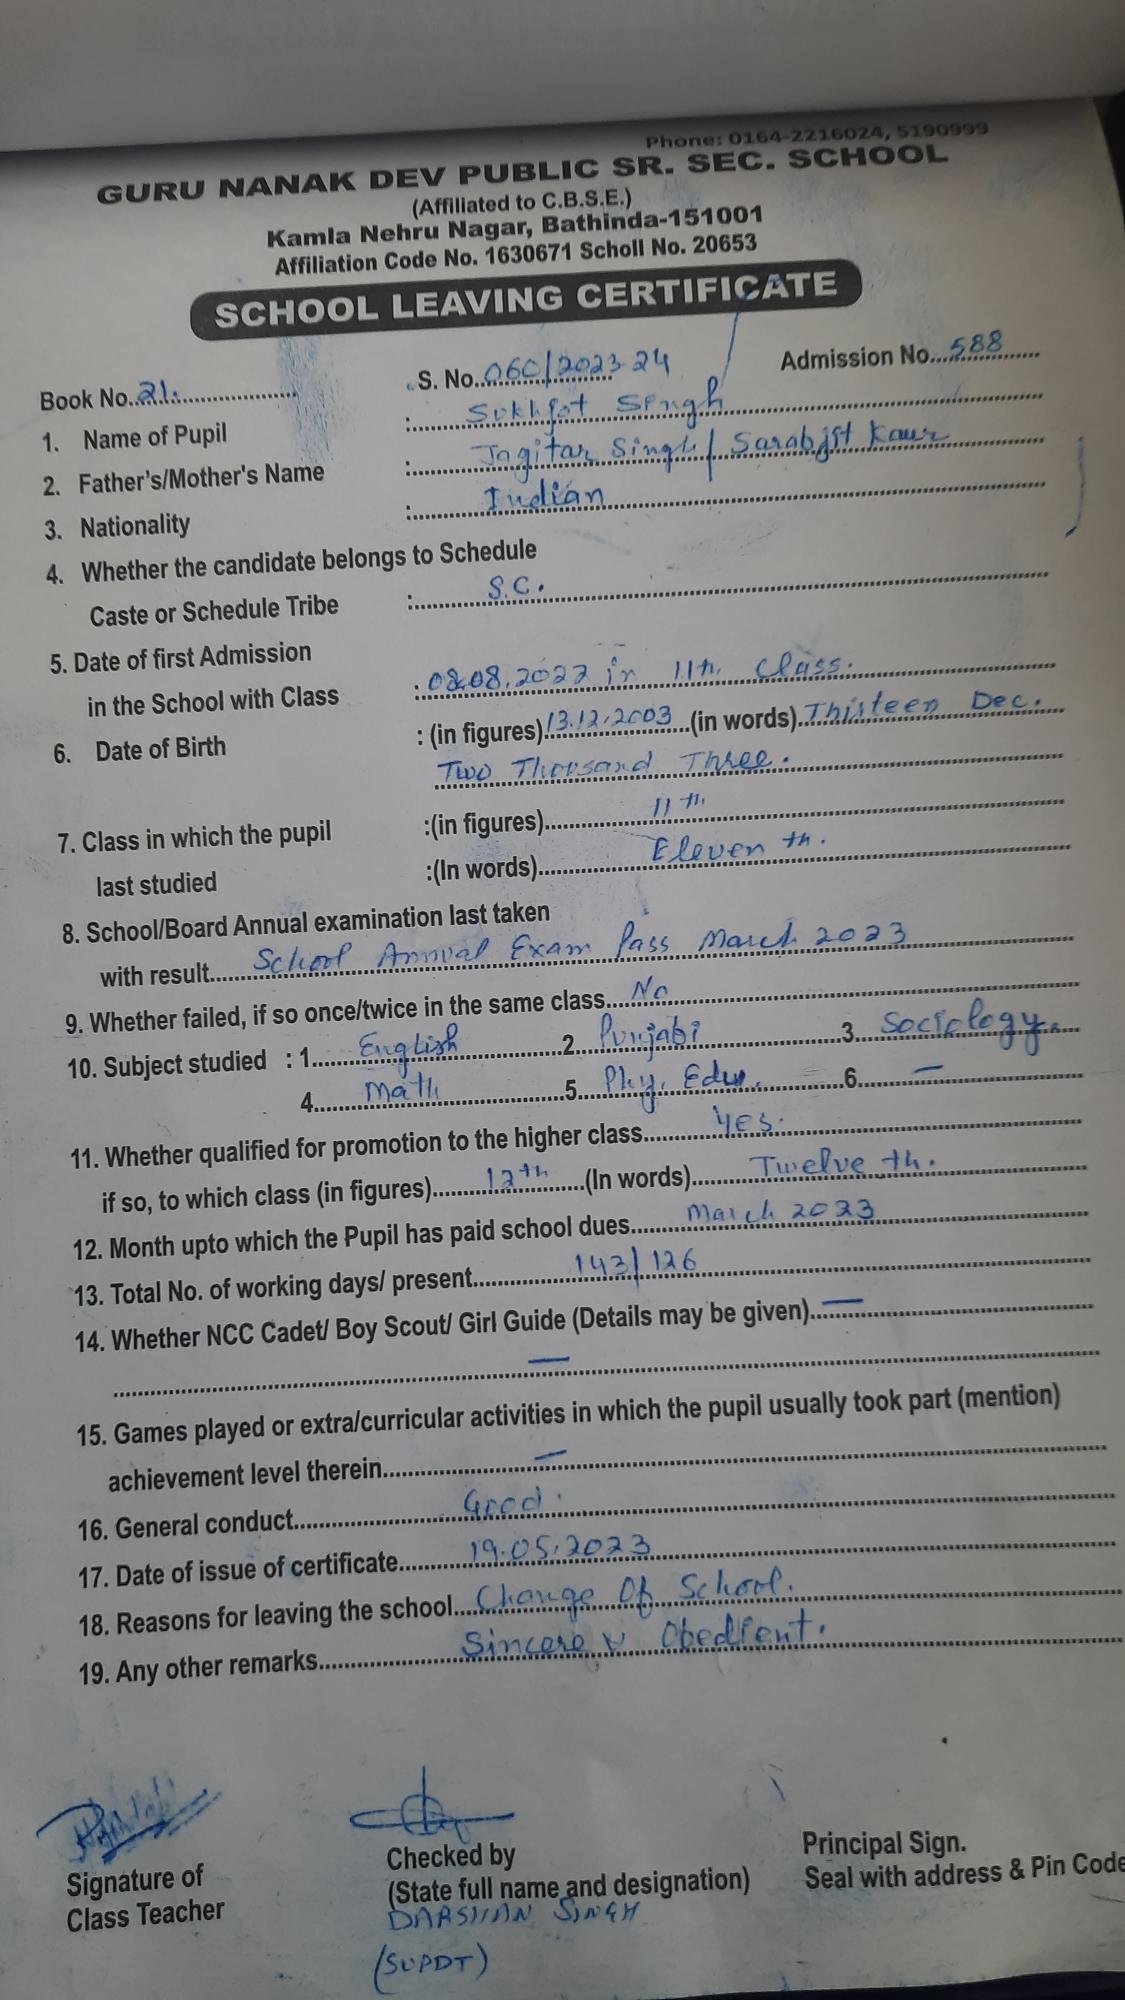 Phone: 0164-2216024, 5190999
GURU NANAK DEV PUBLIC SR. SEC. SCHOOL
(Affiliated to C.B.S.E.)
Kamla Nehru Nagar, Bathinda-151001
Affiliation Code No. 1630671 Scholl No. 20653
SCHOOL LEAVING CERTIFICATE
Book No. 21. S. No. 060/2023-24 Admission No. 588
1. Name of Pupil : Sukhjot Singh
2. Father's/Mother's Name : Jagitar Singh / Sarabjit Kaur
3. Nationality : Indian
4. Whether the candidate belongs to Schedule
Caste or Schedule Tribe : S.C.
5. Date of first Admission
in the School with Class : 08.08.2022 in 11th Class.
6. Date of Birth : (in figures) 13.12.2003 (in words). Thisteen Dec.
Two Thousand Three.
7. Class in which the pupil :(in figures) 11th
last studied :(In words) Eleven th.
8. School/Board Annual examination last taken
with result School Annual Exam Pass March 2023
9. Whether failed, if so once/twice in the same class No
10. Subject studied : 1. English 2. Punjabi 3. Sociology.
4. Math 5. Phy. Edu. 6. —
11. Whether qualified for promotion to the higher class YES.
if so, to which class (in figures) 12th (In words) Twelve th.
12. Month upto which the Pupil has paid school dues March 2023
13. Total No. of working days/ present 143/126
14. Whether NCC Cadet/ Boy Scout/ Girl Guide (Details may be given) —
—
15. Games played or extra/curricular activities in which the pupil usually took part (mention)
achievement level therein —
16. General conduct Good.
17. Date of issue of certificate 19.05.2023
18. Reasons for leaving the school Change Of School.
19. Any other remarks Sincere & Obedient.
Signature of
Class Teacher
Checked by
(State full name and designation)
DARSHAN SINGH
(SUPDT)
Principal Sign.
Seal with address & Pin Code